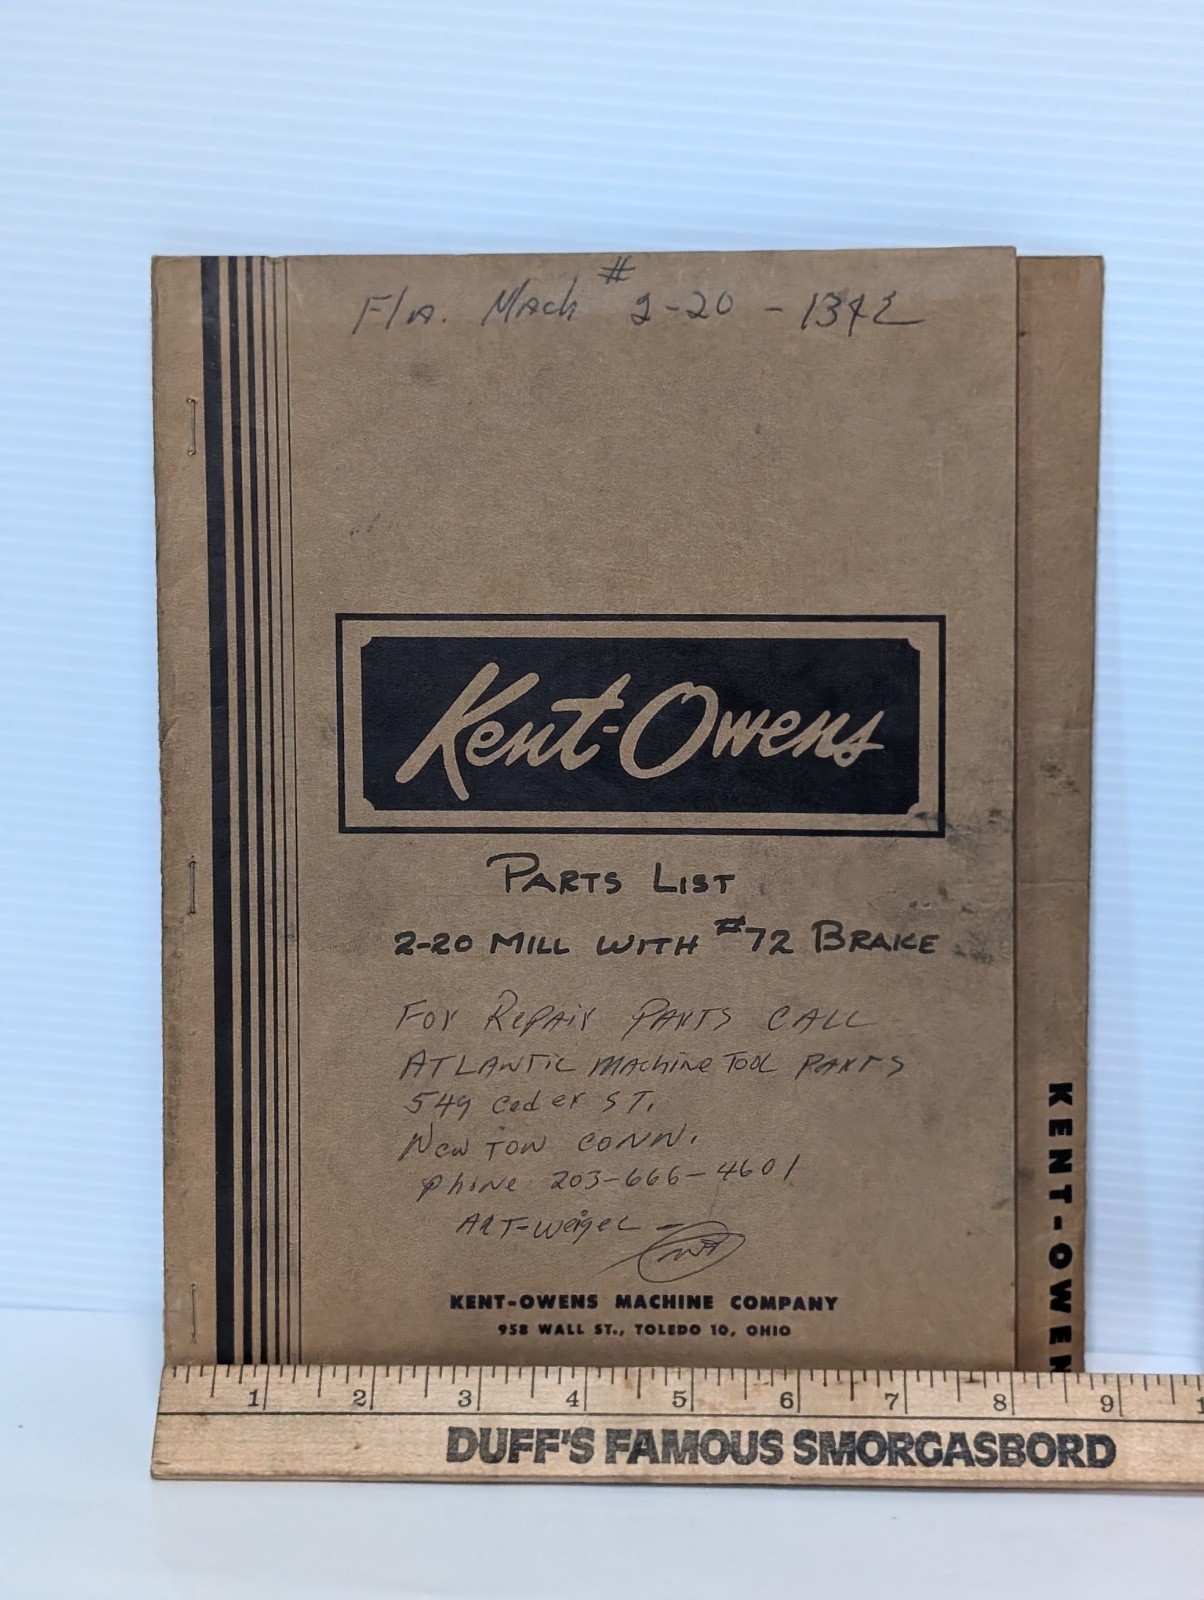 F/A. Mach # 2-20 - 1342
Kent-Owens
PARTS LIST
2-20 MILL WITH #72 BRAKE
For Repair PARTS CALL
ATLANTIC MACHINE TOOL PARTS
549 Ceder ST.
New TOW CONN.
Phone 203-666-4601
ART-Weigel -
KENT-OWENS MACHINE COMPANY
958 WALL ST., TOLEDO 10, OHIO
KENT-OWEN
1 2 3 4 5 6 7 8 9 1
DUFF'S FAMOUS SMORGASBORD